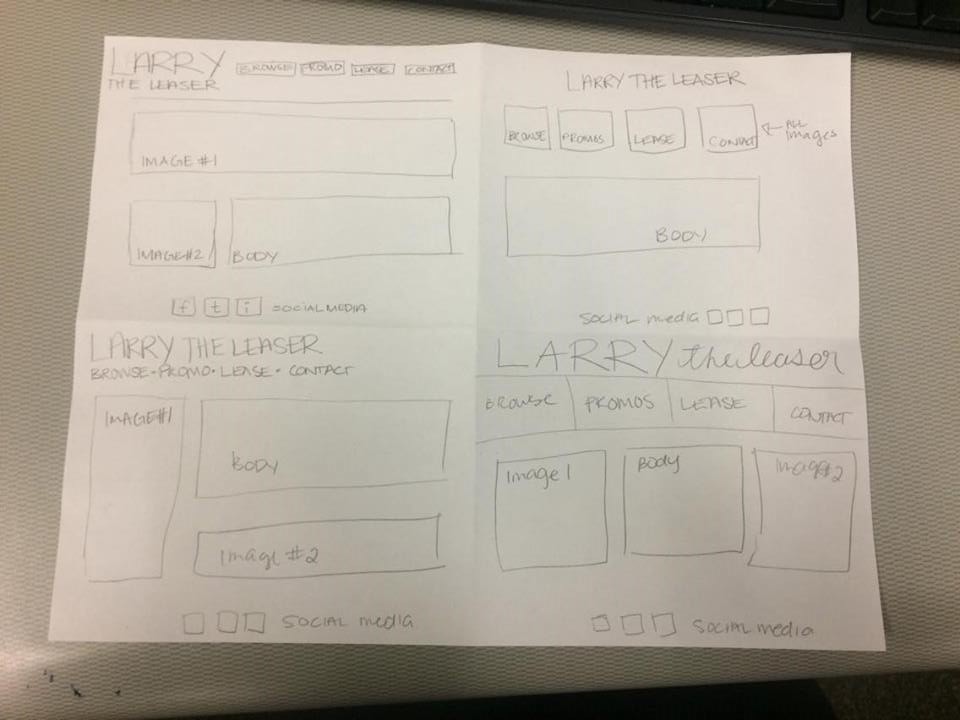 LARRY
THE LEASER
BROWSE PROMO LEASE CONTACT
IMAGE #1
IMAGE#2 BODY
f t i =SOCIAL MEDIA
LARRY THE LEASER
BROWSE PROMOS LEASE CONTACT
ALL
Images
BODY
SOCIAL media
LARRY THE LEASER
BROWSE • PROMO • LEASE • CONTACT
IMAGE#1
BODY
Image #2
SOCIAL media
LARRY the leaser
BROWSE PROMOS LEASE CONTACT
Image 1 Body Image#2
SOCIAL media